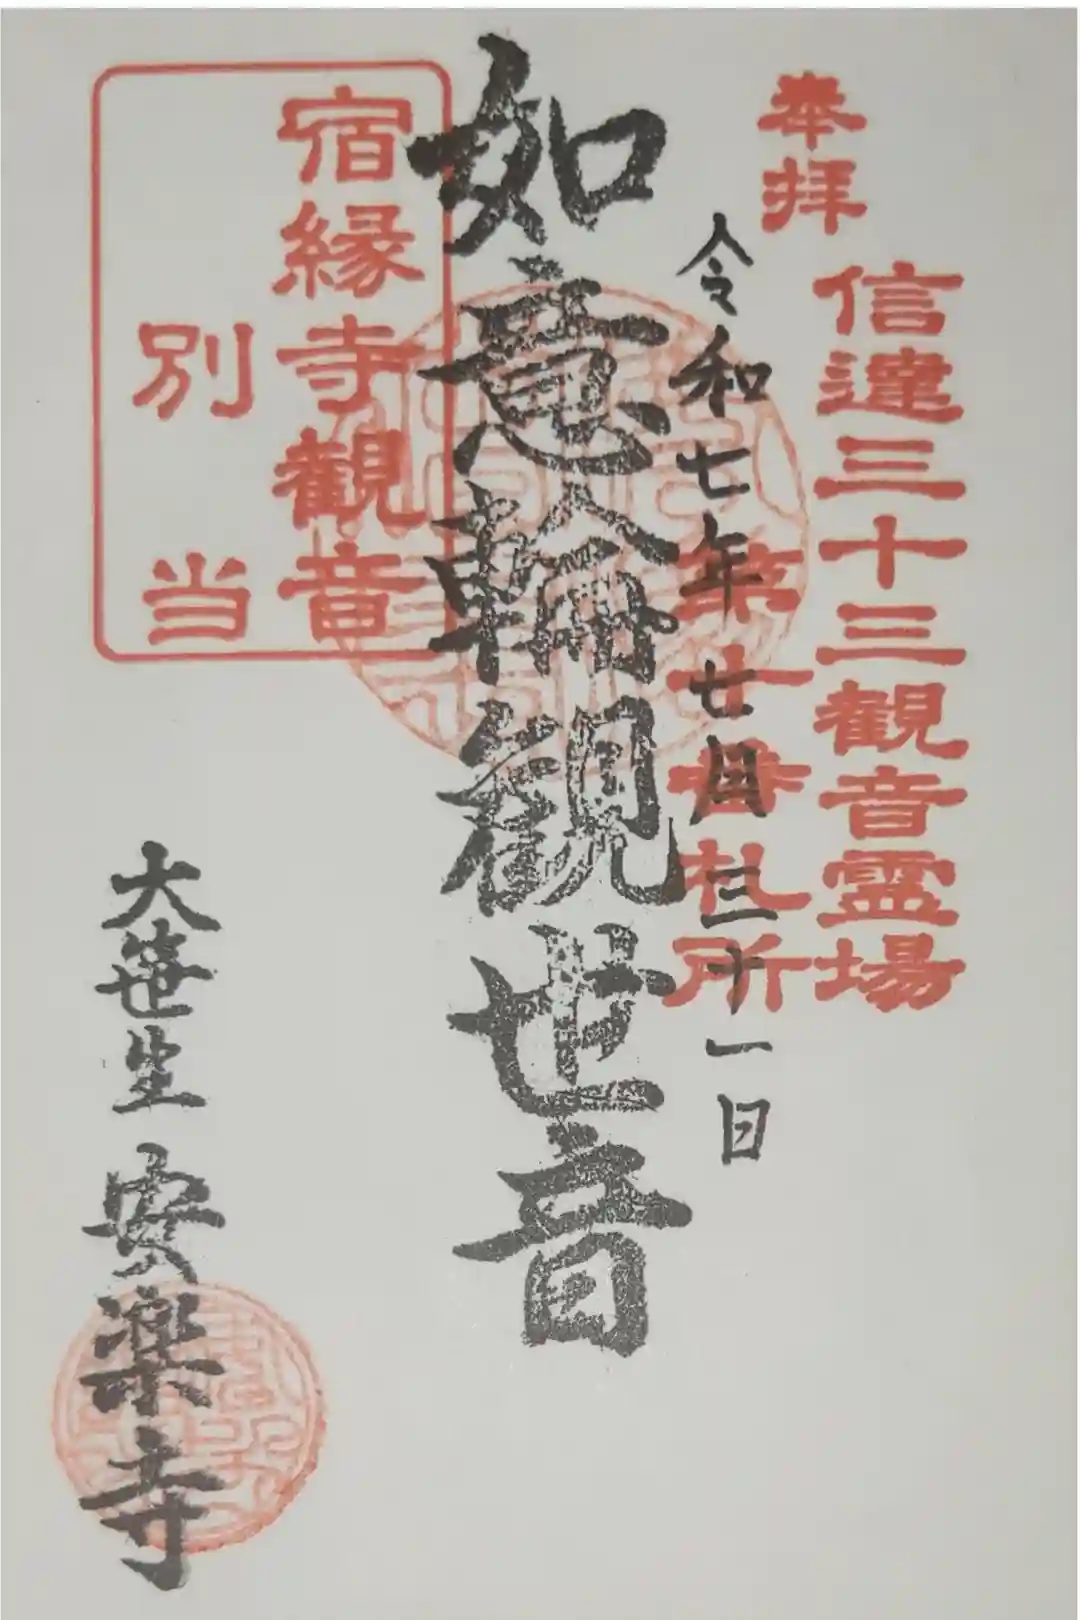 奉拝
信達三十三観音霊場
第廿番札所
令和七年 月三十一日
如意輪観世音
宿縁寺観音
別当
大笹生 安楽寺